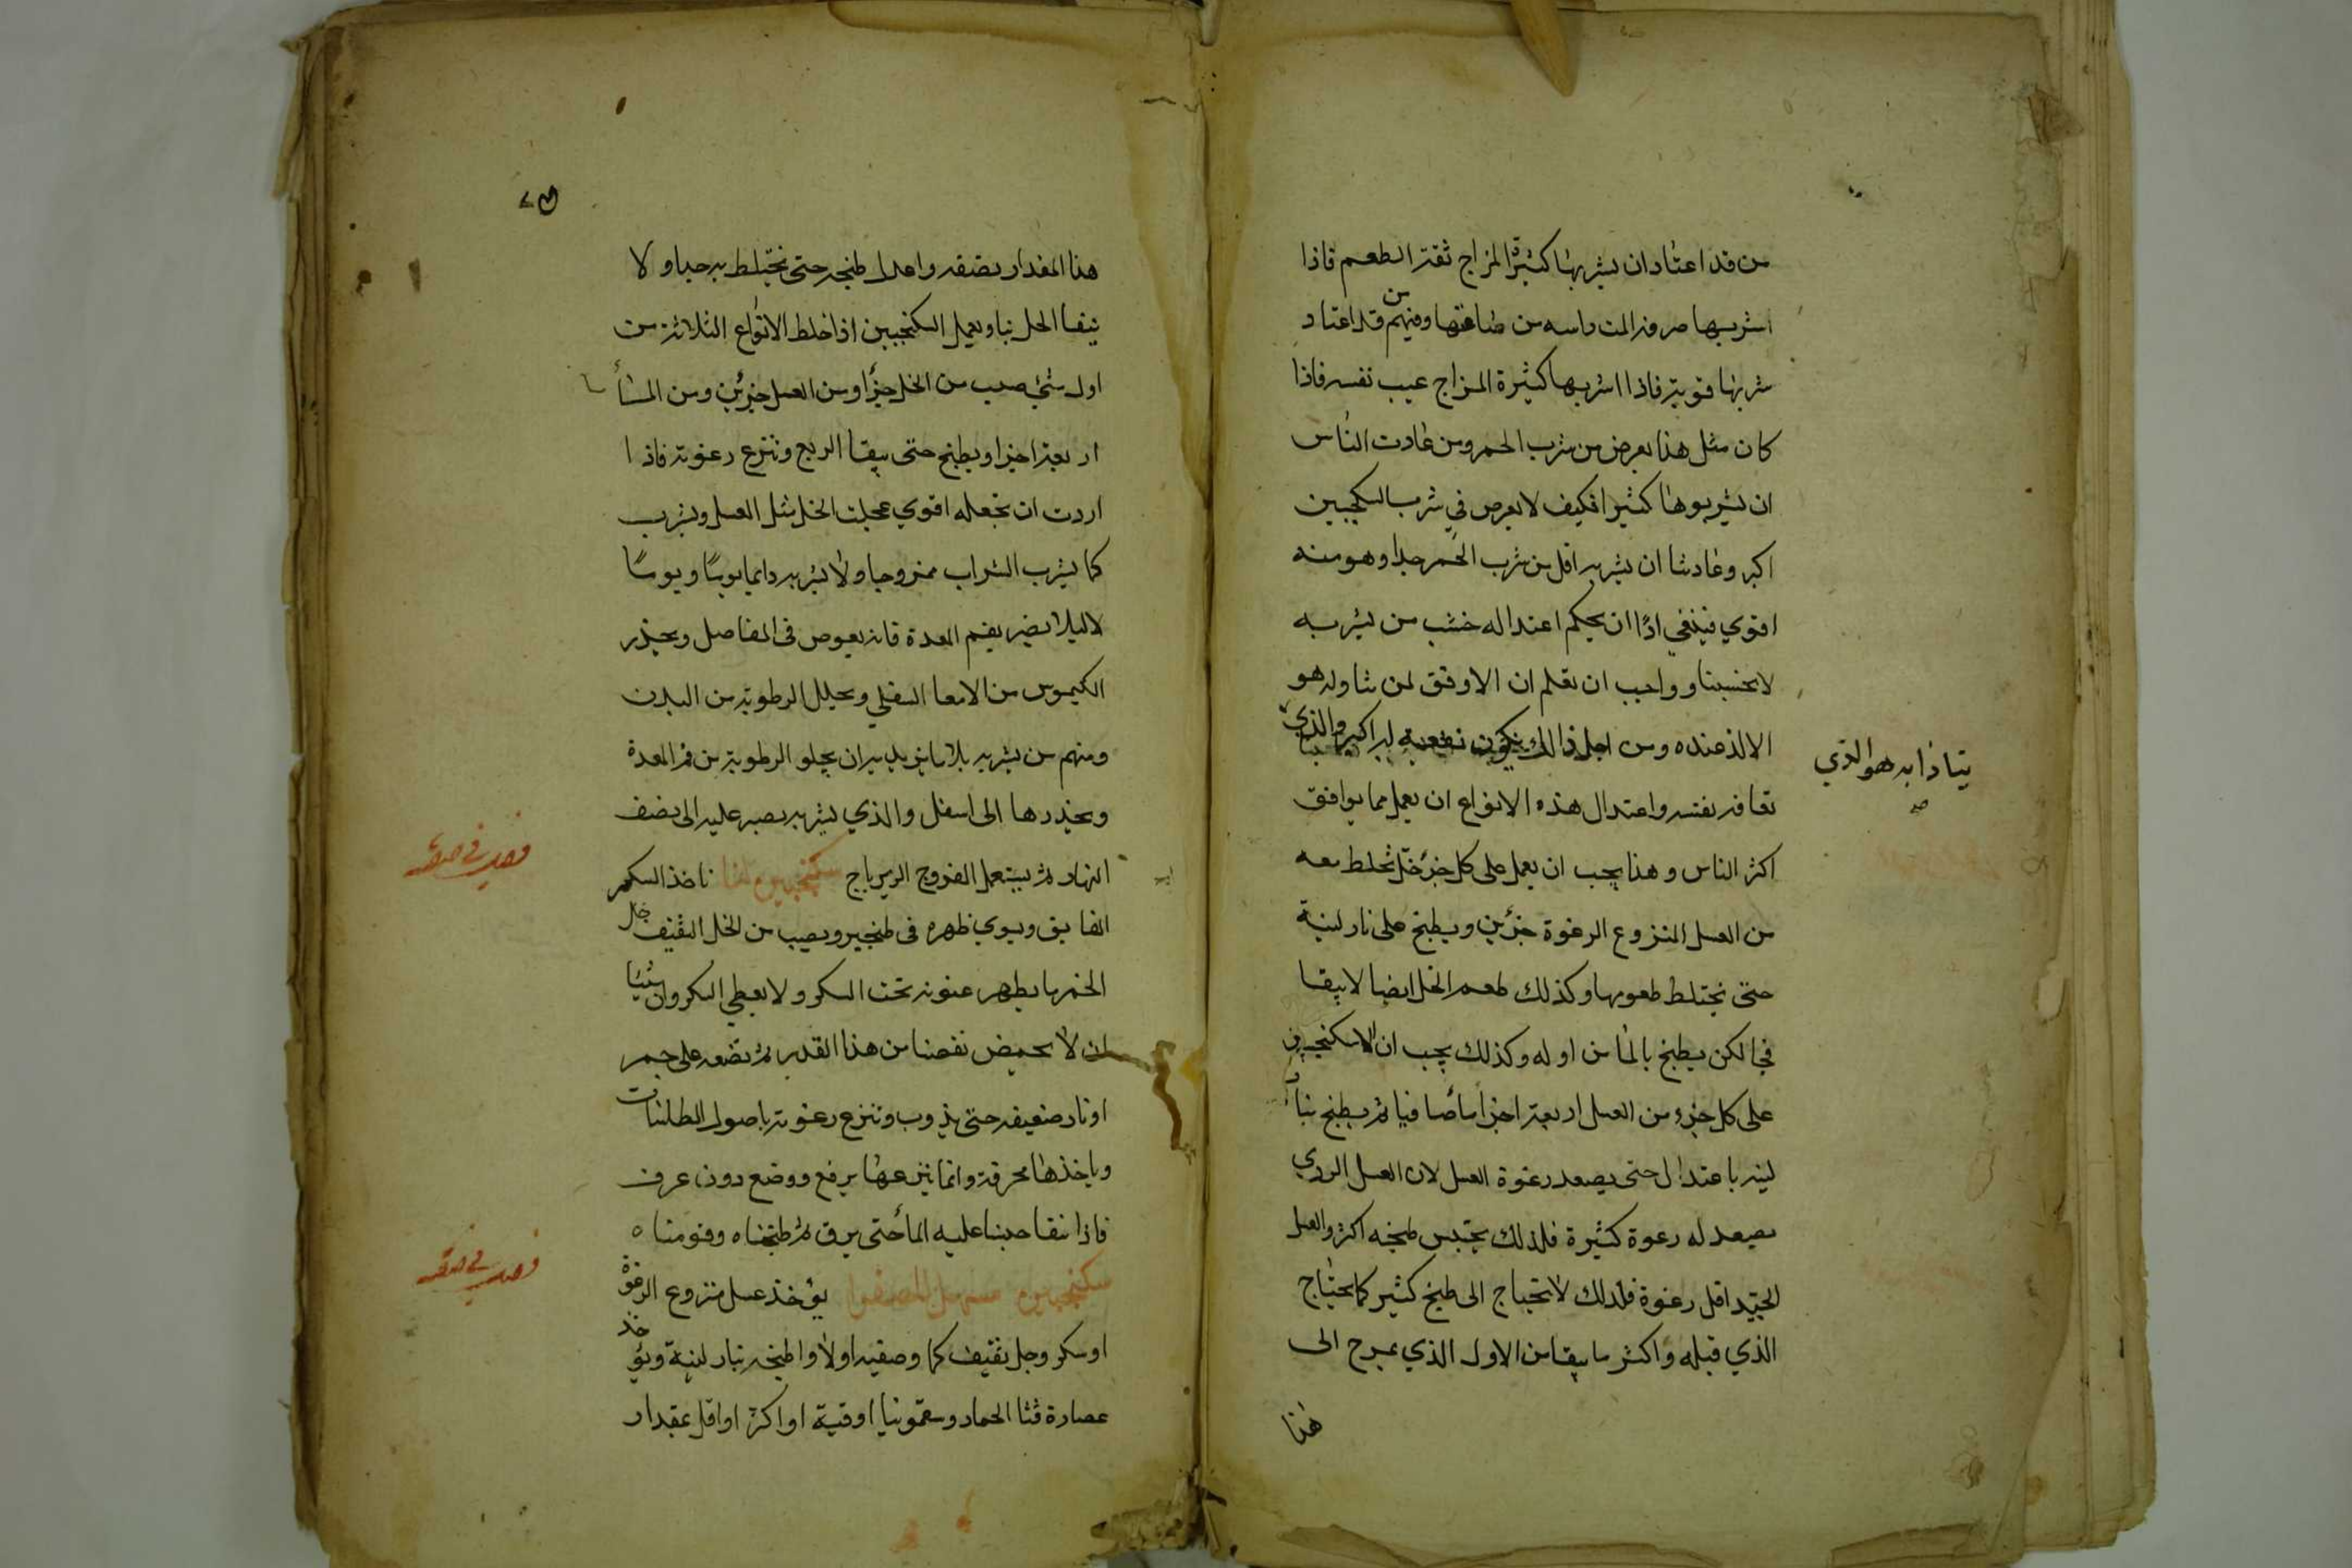 من قد اعتاد ان يشربها كثيرة المزاج ثقته الطعم فاذا
اشربها صرفه المت راسه من ضاعتها ومنهم من قد اعتاد
شربها قويته فاذا اشربها كثيرة المزاج عيب نفسه فاذا
كان مثل هذا يعرض من شرب الخمر ومن عادت الناس
ان يشربوها كثيرا فكيف لا يعرض في شرب السكنجبين
اكبر وعادتنا ان يشربه اقل من شرب الخمر جدا وهو منه
اقوي فينبغي اذًا ان يحكم اعتداله خشب من يشربه
لا بحسبنا وواجب ان تعلم ان الاوفق لمن تناوله هو
الالذ عنده ومن اجل ذالك يكون نفعه له اكبر والذي
يتاذا به هو الذي
صح
تعافه نفسه واعتدال هذه الانواع ان يعمل مما يوافق
اكثر الناس وهذا يجب ان يعمل على كل جزء خل تخلط معه
من العسل المنزوع الرغوة جزئين ويطبخ على نار لينة
حتى تختلط طعومها وكذلك طعم الخل ايضا لا يبقا
في لكن يطبخ بالما من اوله وكذلك يجب ان السكنجبين
على كل جزء من العسل اربعة اجزا مأ صافيا ثم يطبخ بنار
لينه باعتدال حتى يصعد رغوة العسل لان العسل الردي
يصعد له رغوة كثيرة فلذلك يحتبس طبخه اكثر والعسل
الجيد اقل رغوة فلذلك لا تحتاج الى طبخ كثير كما يحتاج
الذي قبله واكثر ما يبقا من الاول الذي يمرح الى
هذا
هذا المقدار نصفه واعدل طبخه حتى يختلط به جيدا ولا
يبقا الخل نيا ويعمل السكنجبين اذا خلط الانواع الثلاثة من
اول شئ يصب من الخل جزا ومن العسل جزئين ومن المأ
اربعة اجزا ويطبخ حتى يبقا الربع وتنزع رغوته فاذا
اردت ان تجعله اقوي عجلت الخل مثل العسل ويشرب
كما يشرب الشراب ممزوجا ولا يشربه دايما يومًا ويومًا
لا ليلا يضر بفم المعدة فانه يعوص في المفاصل ويحذر
الكيموس من الامعا السفلي ويحلل الرطوبة من البدن
ومنهم من يشربه بلا ما يريد به ان يجلو الرطوبة من فم المعدة
ويحذرها الى اسفل والذي يشربه يصبر عليه الى نصف
النهار ثم يستعمل الفروج الزيرباج سكنجبين لنا تاخذ السكر
الفايق ويسوي ظهره في طنجير ويصب من الخل الثقيف خل
الخمر ما يظهر عنونه تحت السكر ولا يغطي السكر وان شئنا
ان لا يحمض نقصنا من هذا القدر ثم نضعه على جمر
او نار ضعيفه حتى يذوب وتنزع رغوته باصول الطلنات
وياخذها محرقة وانما ينزعها برفع ووضع دون غرف
فاذا نقا صببنا عليه المأ حتى يرق ثم طبخناه وقومناه
سكنجبين مسهل للصفرا يؤخذ عسل منزوع الرغوة
او سكر وخل ثقيف كما وصفته اولا واطبخه بنار لينة ويؤخذ
عصارة قثا الحمار وسقمونيا اوقية او اكثر او اقل بمقدار